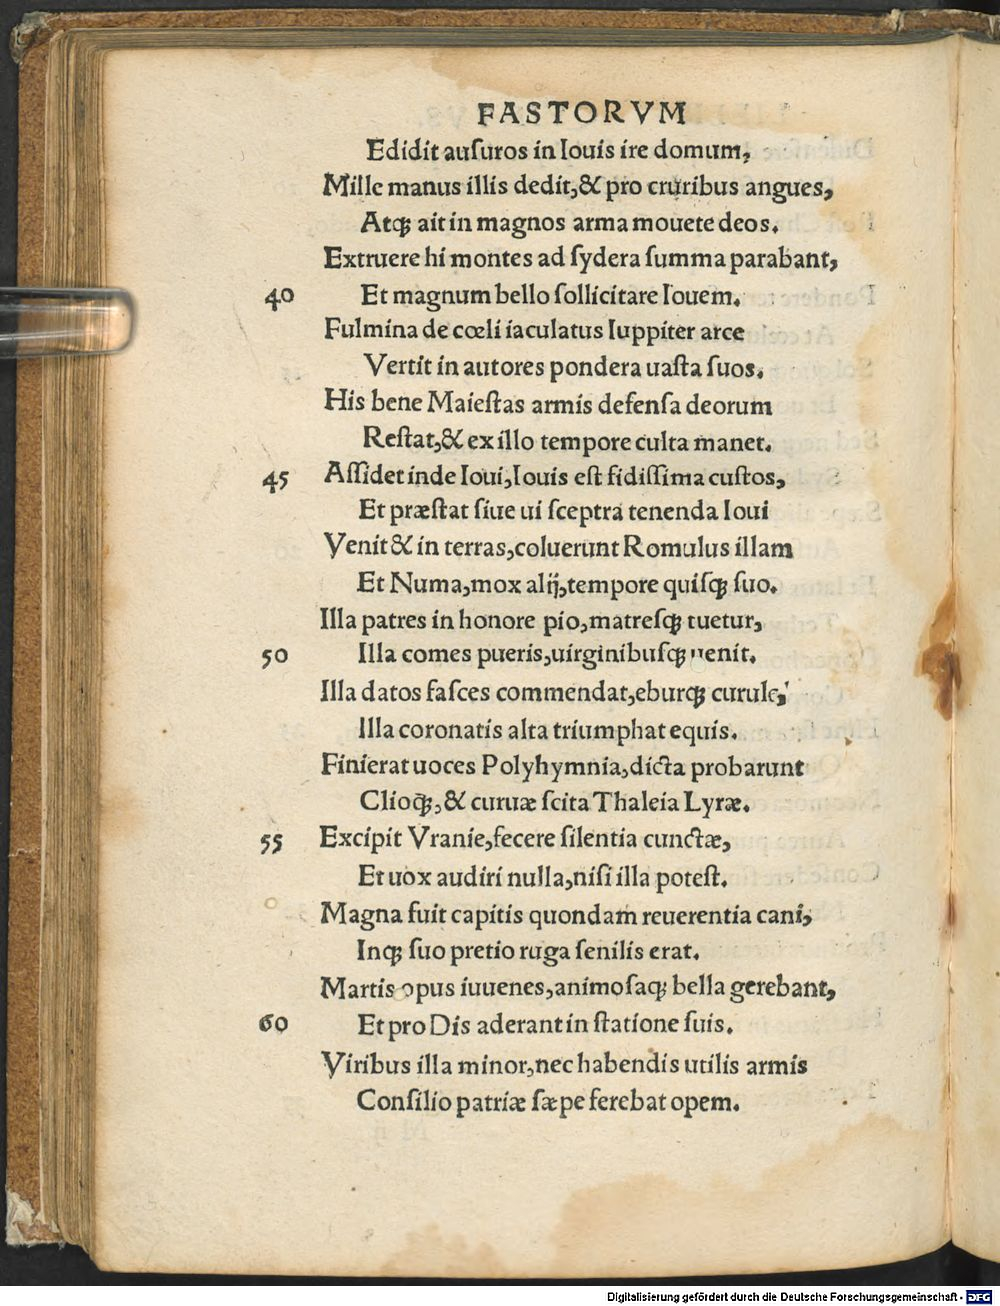 FASTORVM
Edidit auſuros in Iouis ire domum,
Mille manus illis dedit,& pro cruribus angues,
Atq; ait in magnos arma mouete deos.
Extruere hi montes ad ſydera ſumma parabant,
40 Et magnum bello ſollicitare Iouem.
Fulmina de cœli iaculatus Iuppiter arce
Vertit in autores pondera uaſta ſuos.
His bene Maieſtas armis defenſa deorum
Reſtat,& ex illo tempore culta manet.
45 Aſſidet inde Ioui,Iouis eſt fidiſſima cuſtos,
Et præſtat ſiue ui ſceptra tenenda Ioui
Venit & in terras,coluerunt Romulus illam
Et Numa,mox alij,tempore quiſq; ſuo.
Illa patres in honore pio,matreſq; tuetur,
50 Illa comes pueris,uirginibuſq; uenit.
Illa datos faſces commendat,eburq; curule,
Illa coronatis alta triumphat equis.
Finierat uoces Polyhymnia,dicta probarunt
Clioq̃;,& curuæ ſcita Thaleia Lyræ.
55 Excipit Vranie,fecere ſilentia cunctæ,
Et uox audiri nulla,niſi illa poteſt.
Magna fuit capitis quondam reuerentia cani,
Inq; ſuo pretio ruga ſenilis erat.
Martis opus iuuenes,animoſaq; bella gerebant,
60 Et pro Dis aderant in ſtatione ſuis.
Viribus illa minor,nec habendis utilis armis
Conſilio patriæ ſæpe ferebat opem.
Digitalisierung gefördert durch die Deutsche Forschungsgemeinschaft - DFG